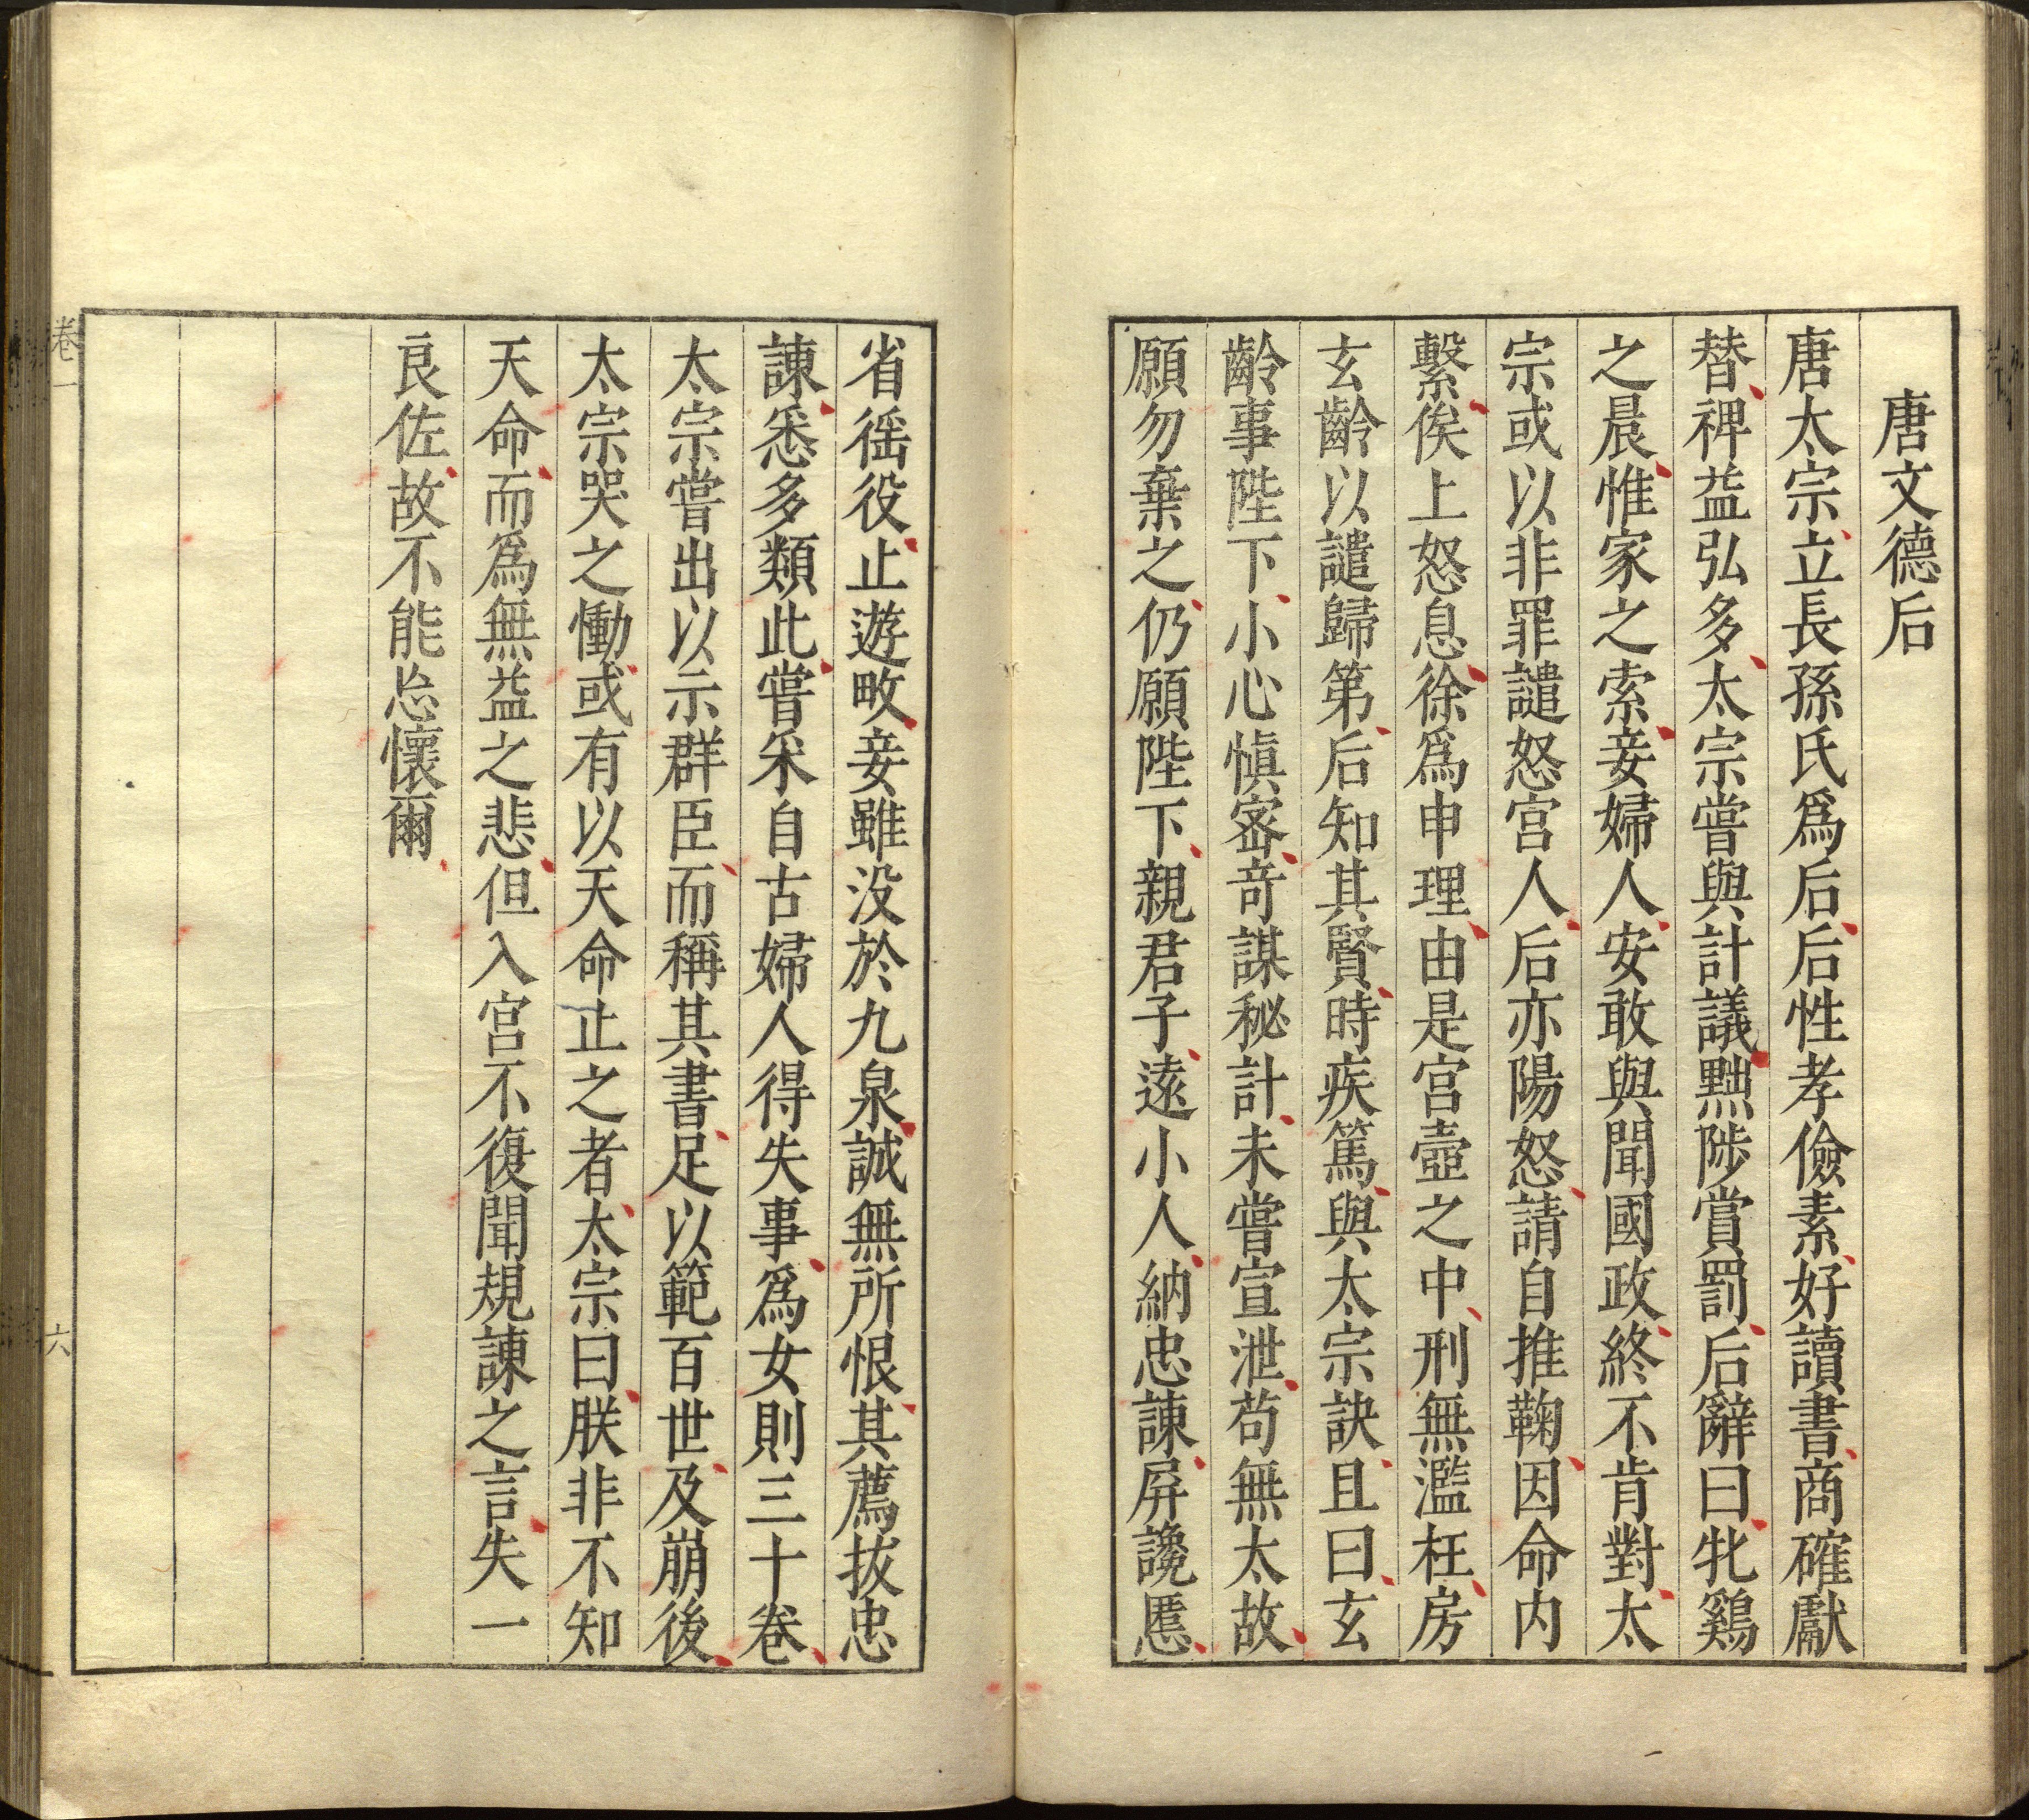 唐文德后
唐太宗立長孫氏爲后后性孝儉素好讀書商確獻
替裨益弘多太宗嘗與計議黜陟賞罰后辭曰牝鷄
之晨惟家之索妾婦人安敢與聞國政終不肯對太
宗或以非罪譴怒宫人后亦陽怒請自推鞠因命内
繫俟上怒息徐爲申理由是宫壼之中刑無濫枉房
玄齡以譴歸第后知其賢時疾篤與太宗訣且曰玄
齡事陛下小心慎宻竒謀秘計未嘗宣泄苟無太故
願勿棄之仍願陛下親君子逺小人納忠諫屏讒慝
省徭役止遊畋妾雖没於九泉誠無所恨其薦拔忠
諫悉多類此嘗采自古婦人得失事爲女則三十卷
太宗嘗出以示群臣而稱其書足以範百世及崩後
太宗哭之慟或有以天命止之者太宗曰朕非不知
天命而爲無益之悲但入宫不復聞規諫之言失一
良佐故不能忘懷爾
卷一
六